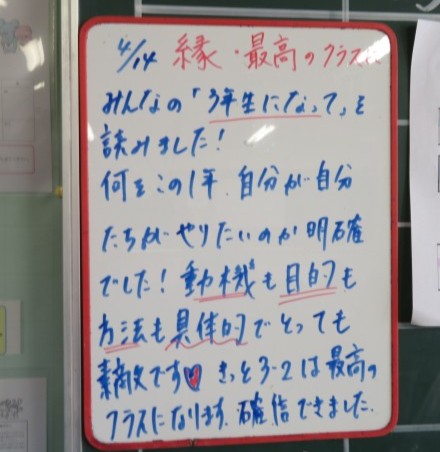 4/14 縁・最高のクラスに
みんなの「3年生になって」を
読みました!
何をこの1年、自分が自分
たちがやりたいのか明確
でした!動機も目的も
方法も具体的でとっても
素敵です♥ きっと3-2は最高の
クラスになります。確信できました。